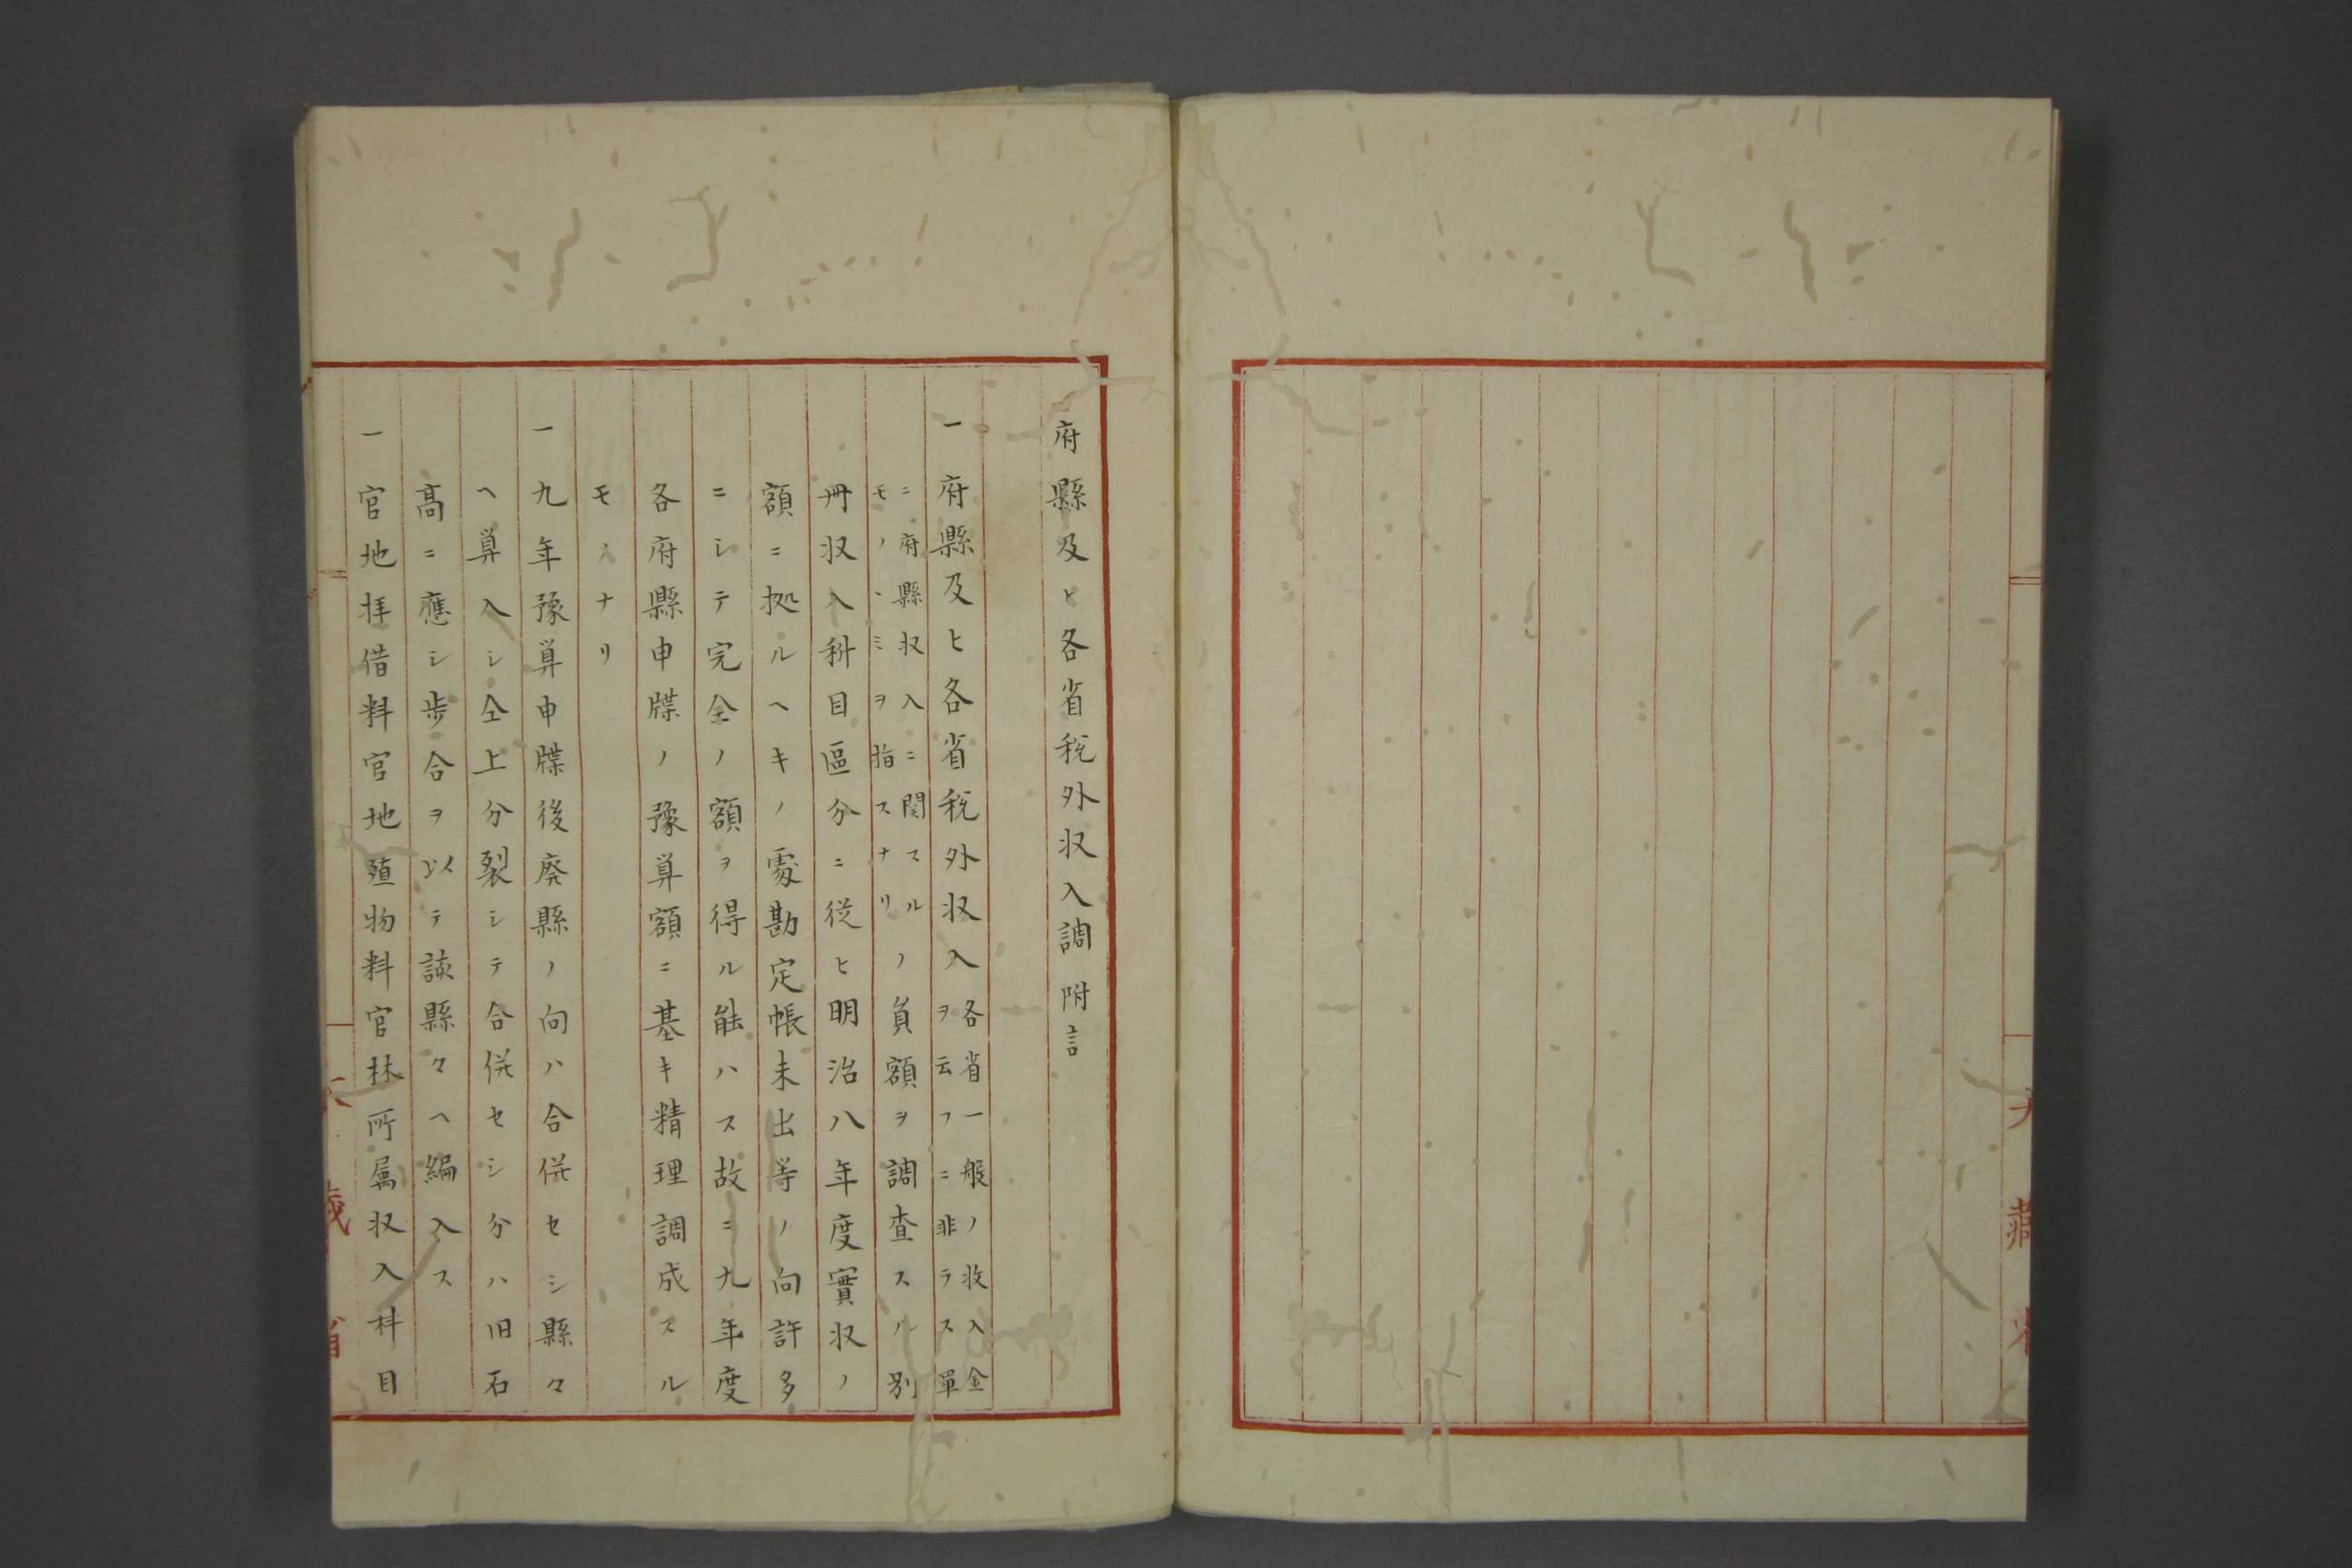 大藏省
府縣及ヒ各省税外収入調附言
一府縣及ヒ各省税外収入各省一般ノ收入金
ヲ云フニ非ラス單
ニ府縣収入ニ関スル
モノヽミヲ指スナリノ員額ヲ調査スル別
冊収入科目區分ニ従ヒ明治八年度實収ノ
額ニ拠ルヘキノ處勘定帳未出等ノ向許多
ニシテ完全ノ額ヲ得ル能ハス故ニ九年度
各府縣申牒ノ豫算額ニ基キ精理調成スル
モノナリ
一九年豫算申牒後廃縣ノ向ハ合併セシ縣々
ヘ算入シ仝上分裂シテ合併セシ分ハ旧石
高ニ應シ歩合ヲ以テ該縣々ヘ編入ス
一官地拝借料官地殖物料官林所属収入科目